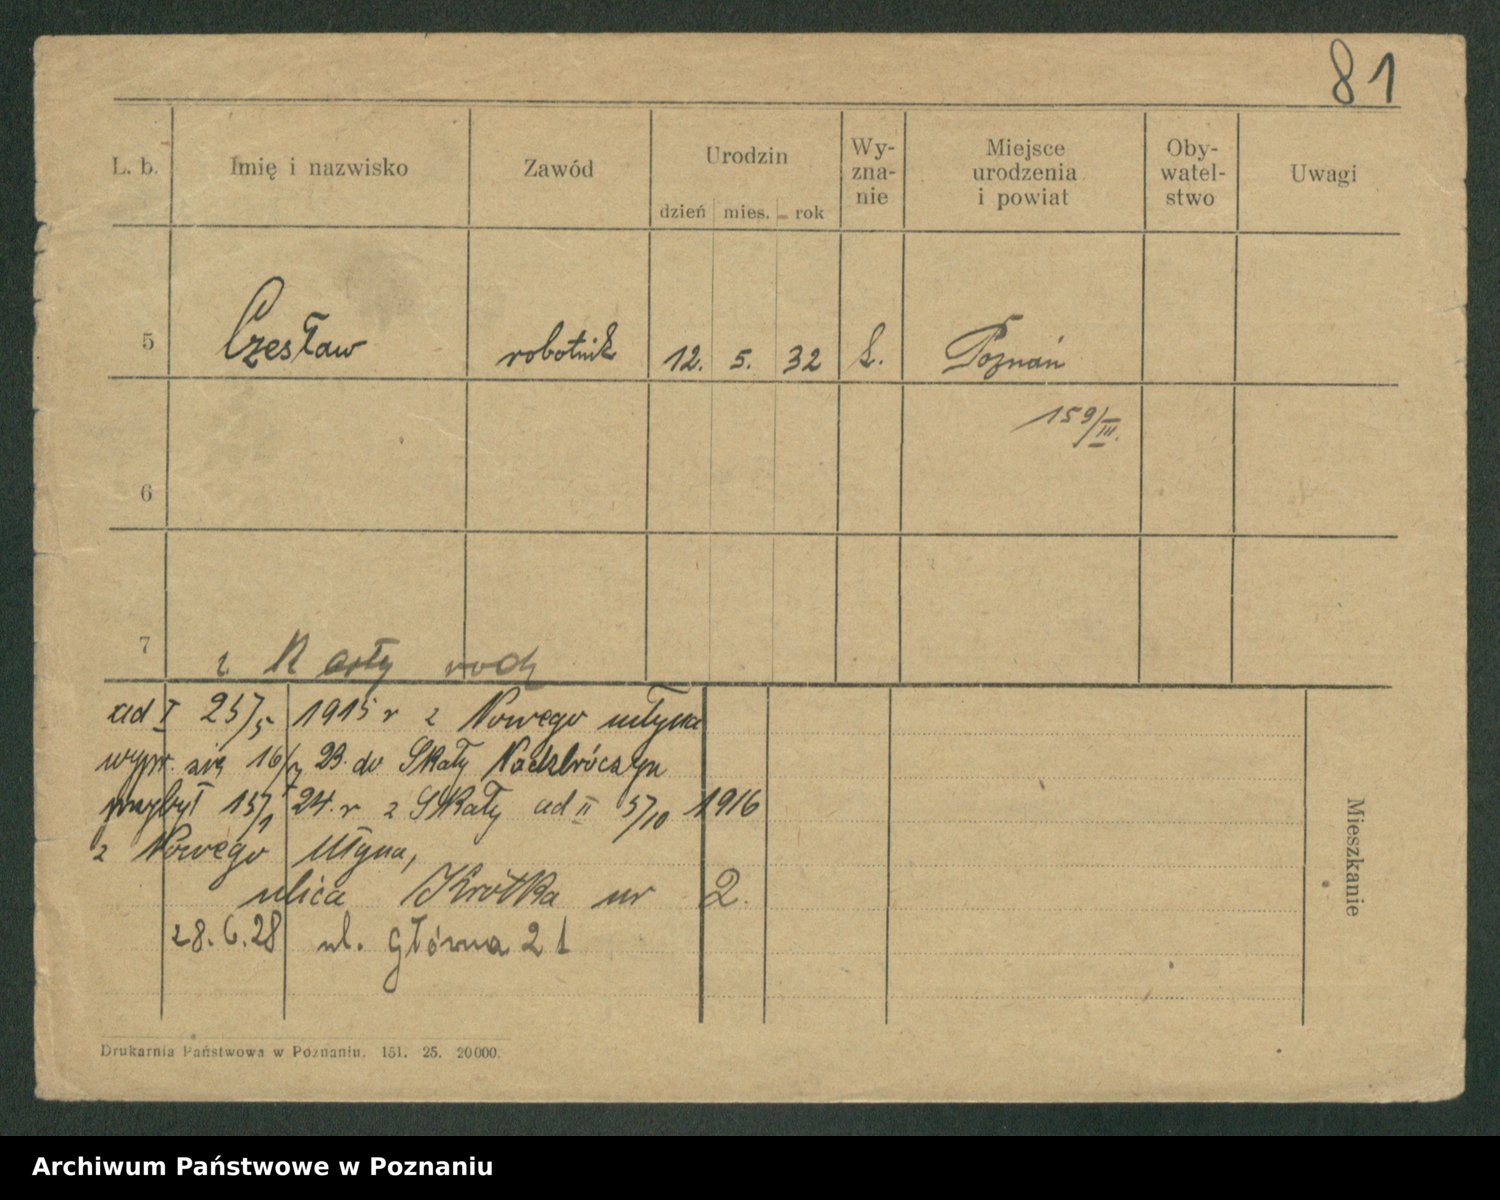 81
L. b. Imię i nazwisko Zawód Urodzin Wy-zna-nie Miejsce urodzenia i powiat Oby-watel-stwo Uwagi
dzień mies. rok
5 Czesław robotnik 12. 5. 32 k. Poznań
159/III.
6
7
z Karty rodz
ad I 25/5 1915 r z Nowego młyna
wypr. się 16/7 23. do Skały
przybył 15/1 24. r z Skały ad II 5/10 1916
z Nowego Młyna,
ulica Krótka nr 2.
28.6.28 ul. główna 21
Mieszkanie
Drukarnia Państwowa w Poznaniu. 151. 25. 20000.
Archiwum Państwowe w Poznaniu